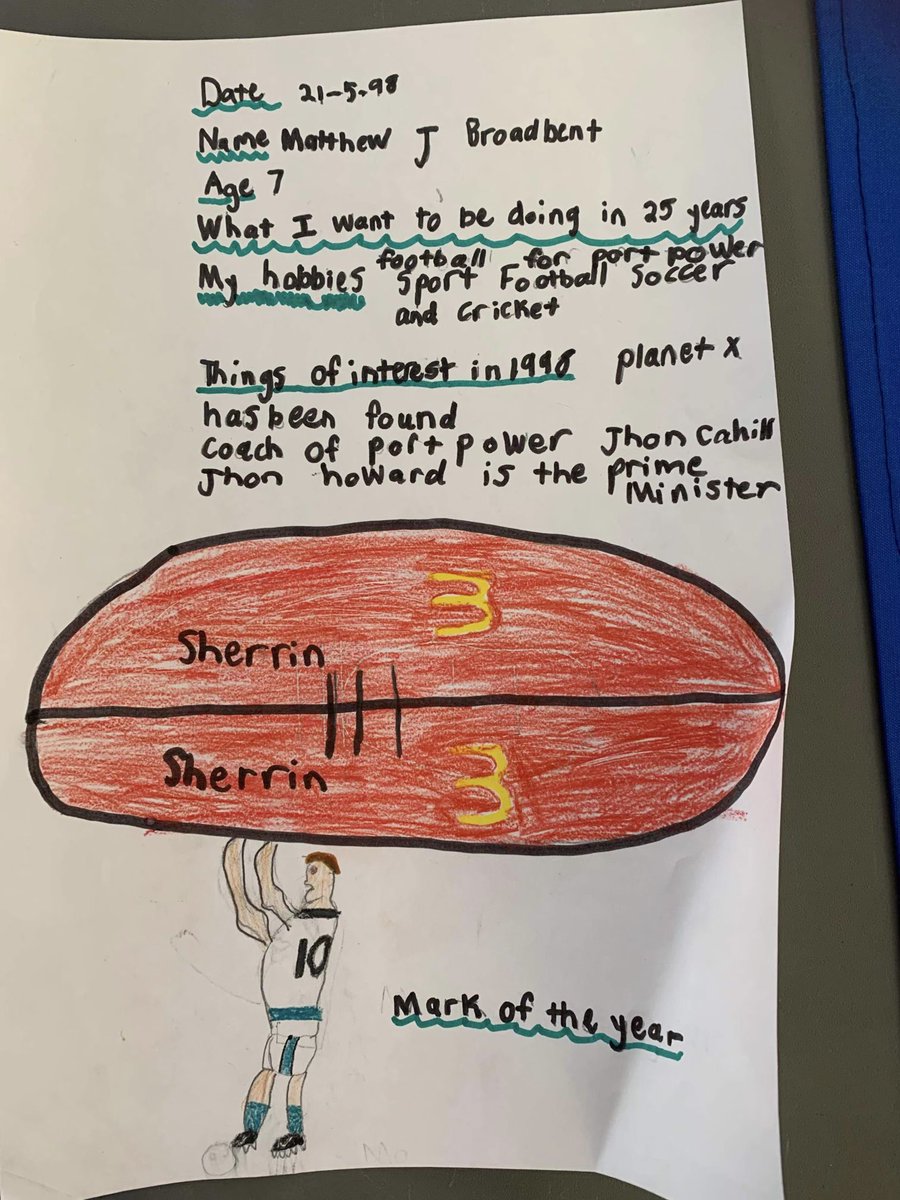 Date 21-5-98
Name Matthew J Broadbent
Age 7
What I want to be doing in 25 years
football for port power
My hobbies Sport Football Soccer
and cricket
Things of interest in 1998 planet x
has been found
coach of port power Jhon Cahill
Jhon howard is the prime
Minister
Sherrin
Sherrin
10
Mark of the year